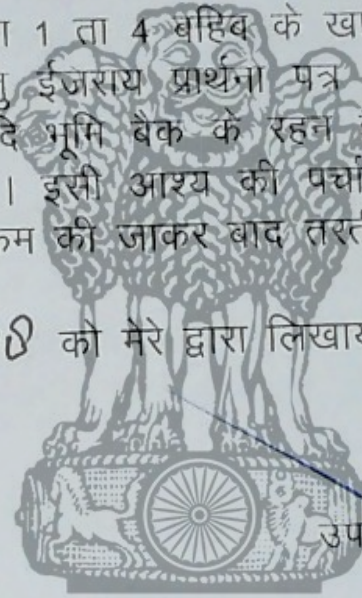 ा 1 ता 4 बहिब के ख
ु ईजराय प्रार्थना पत्र
दे भूमि बैक के रहन
। इसी आश्य की पर्चा
कम की जाकर बाद तरत
8 को मेरे द्वारा लिखाय
उप